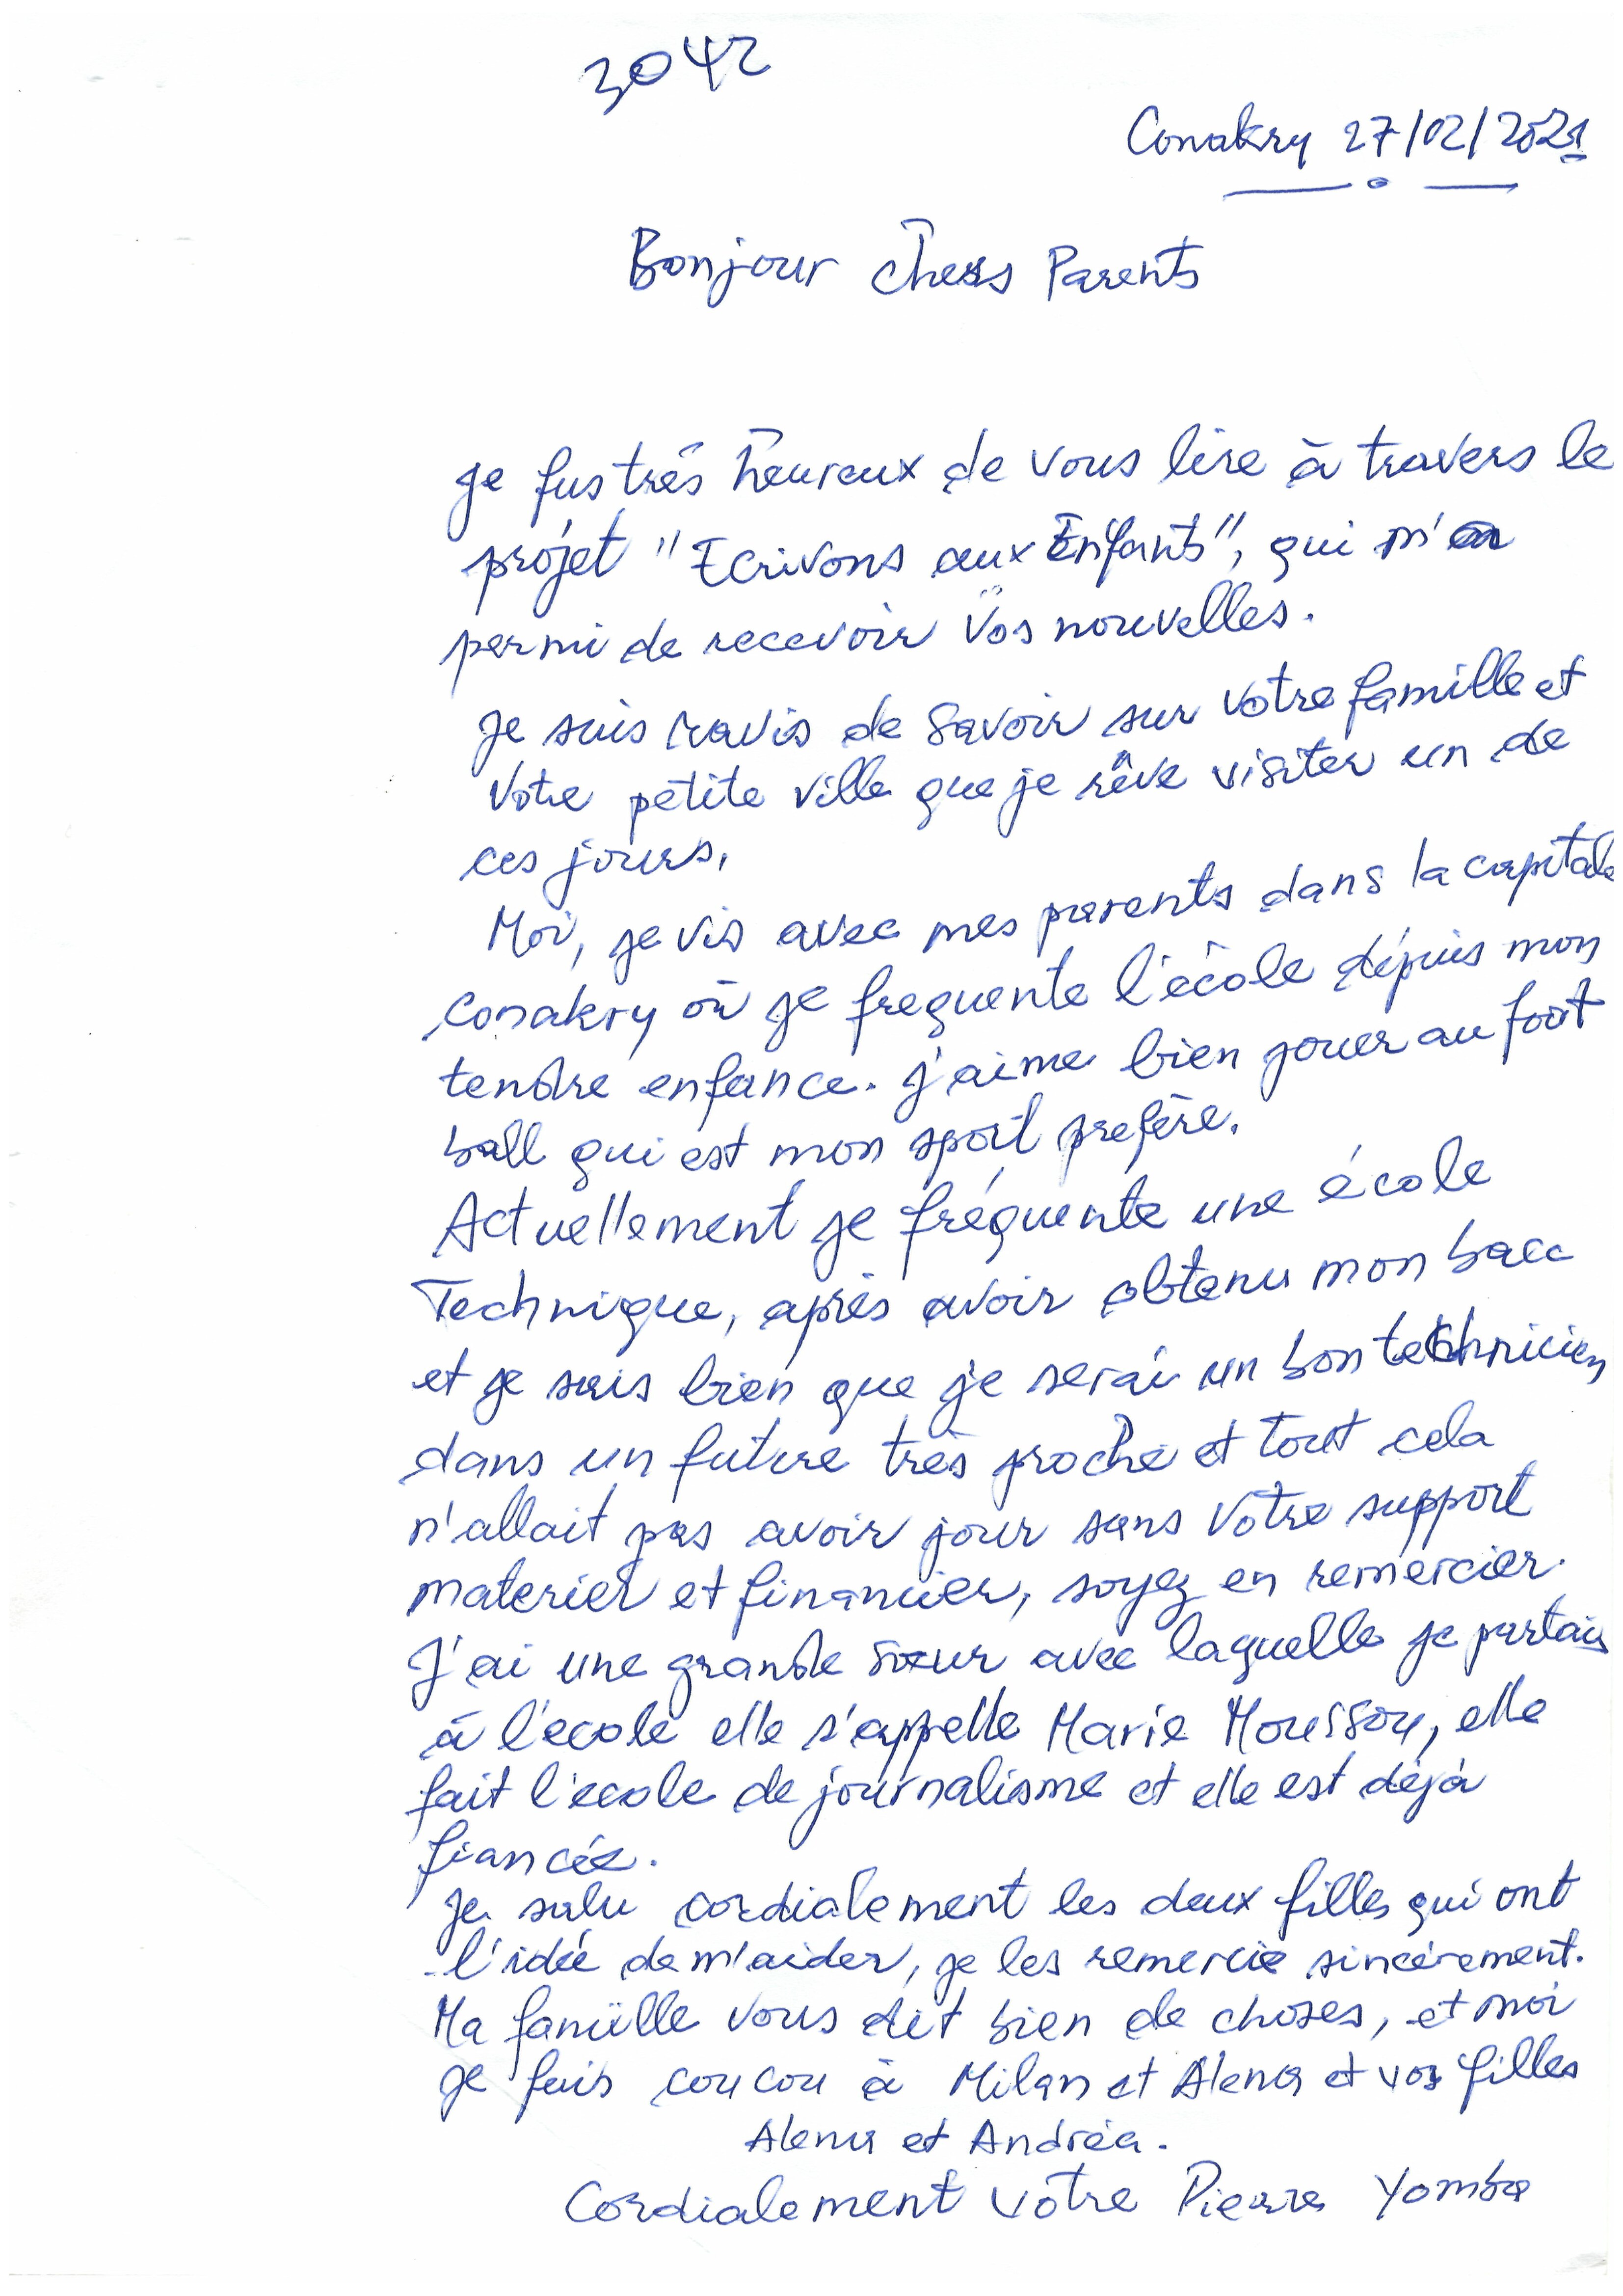 3042
Conakry 27/02/2021
Bonjour chers Parents
je fus très heureux de vous lire à travers le
projet "Ecrivons aux Enfants", qui m'a
permi de recevoir vos nouvelles.
je suis ravis de savoir sur votre famille et
votre petite ville que je rêve visiter un de
ces jours.
Moi, je vis avec mes parents dans la capitale
conakry où je frequente l'école dépuis mon
tendre enfance. j'aime bien jouer au foot
ball qui est mon sport prefère.
Actuellement je fréquente une école
Technique, après avoir obtenu mon bacc
et je sais bien que je serai un bon technicien
dans un future très proche et tout cela
n'allait pas avoir jour sans votre support
materiel et financier, soyez en remercier.
J'ai une grande sœur avec laquelle je partais
à l'ecole elle s'appelle Marie Moussou, elle
fait l'ecole de journalisme et elle est déjà
fiancée.
je salu cordialement les deux filles qui ont
l'idée de m'aider, je les remercie sincérement.
Ma famille vous dit bien de choses, et moi
je fais coucou à Milan et Alena et vos filles
Alena et Andréa.
Cordialement votre Pierre Yomba